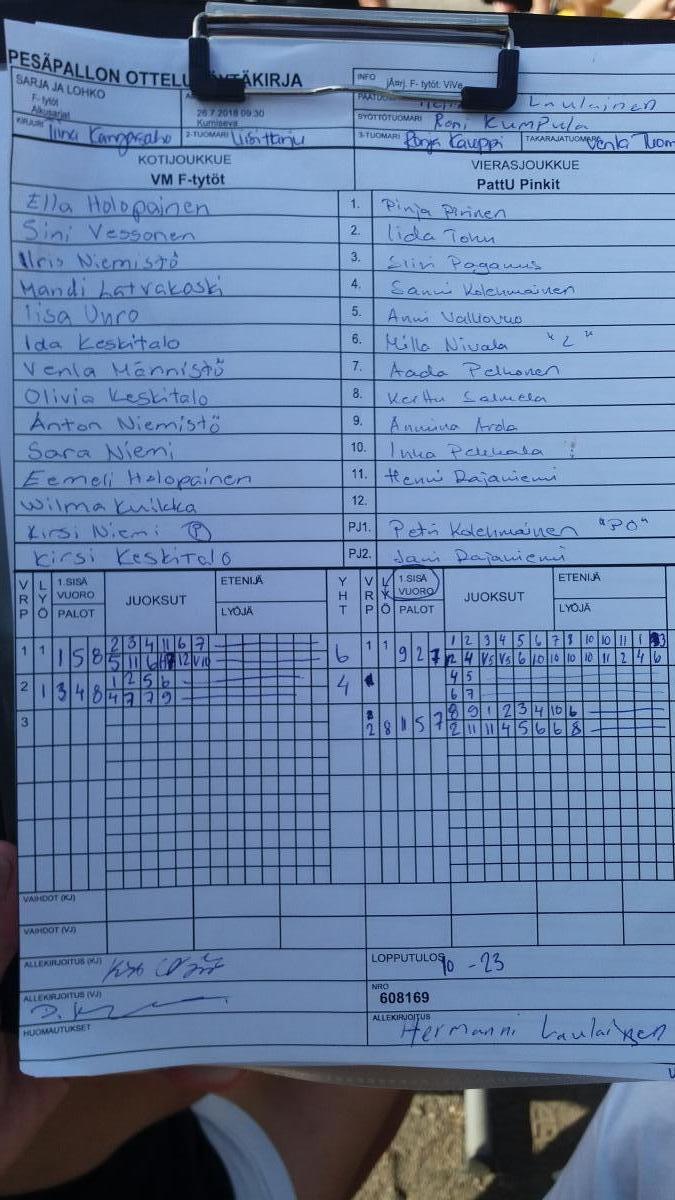 PESÄPALLON OTTELUPÖYTÄKIRJA
SARJA JA LOHKO
F- tytöt
Alkusarjat
26.7.2018 09:30
Kumiseva
INFO jÄ¤rj. F- tytöt. ViVe
Laulainen
SYÖTTÖTUOMARI Roni Kumpula
KIRJURI Iina Kangasaho 2-TUOMARI 3-TUOMARI Ronja Kauppi TAKARAJATUOMARI Venla Tuom
KOTIJOUKKUE VIERASJOUKKUE
VM F-tytöt PattU Pinkit
Ella Holopainen 1. Pinja Pirinen
Sini Vessonen 2. Iida
Iiris Niemistö 3. Siiri Paganus
Mandi Latvakoski 4. Sanni Kolehmainen
Iisa Unro 5. Anni Valkovuo
Ida Keskitalo 6. Milla Nivala "L"
Venla Männistö 7. Aada Pelkonen
Olivia Keskitalo 8. Kerttu Salmela
Anton Niemistö 9. Anniina Arola
Sara Niemi 10. Inka Pekkala
Eemeli Holopainen 11. Henni Rajaniemi
Wilma Kuikka 12.
Kirsi Niemi P PJ1. Petri Kolehmainen "PO"
Kirsi Keskitalo PJ2. Jani Rajaniemi
VRP LYÖ 1.SISÄ VUORO PALOT JUOKSUT ETENIJÄ LYÖJÄ YHT VRP LYÖ 1.SISÄ VUORO PALOT JUOKSUT ETENIJÄ LYÖJÄ
1 1 1 5 8 2 3 4 11 6 7 6 1 1 9 2 7 1 2 3 4 5 6 7 8 10 10 11 1 3
5 11 6 12 V10 12 4 V5 V5 6 10 10 10 10 11 2 4 6
2 1 3 4 8 1 2 5 6 4 4 5
4 7 7 9 6 7
3 2 8 1 5 7 8 9 1 2 3 4 10 6
2 11 11 4 5 6 6 8
VAIHDOT (KJ)
VAIHDOT (VJ)
ALLEKIRJOITUS (KJ) LOPPUTULOS 10 - 23
ALLEKIRJOITUS (VJ) NRO
608169
HUOMAUTUKSET ALLEKIRJOITUS
Hermanni Laulainen